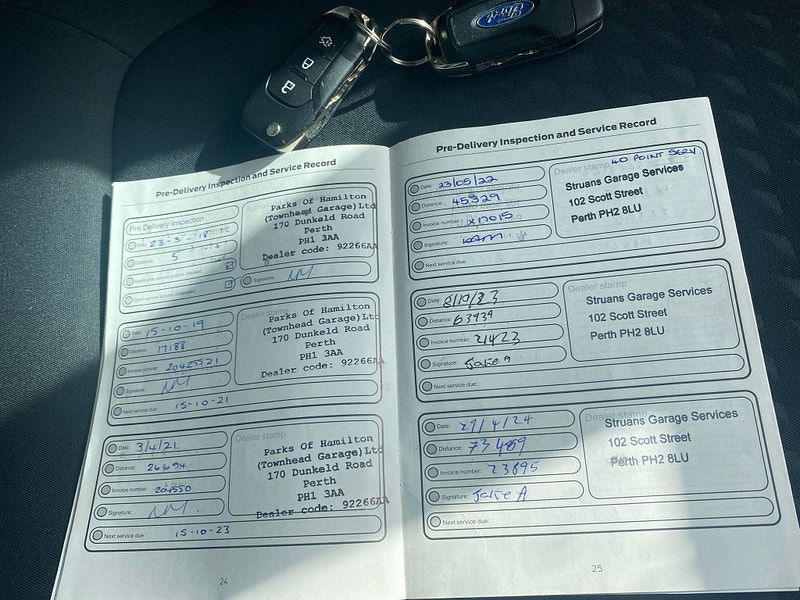 Ford
Pre-Delivery Inspection and Service Record
Pre Delivery Inspection
Date: 23-3-18
Distance: 5
Signature:
Parks Of Hamilton
(Townhead Garage)Ltd
170 Dunkeld Road
Perth
PH1 3AA
Dealer code: 92266AA
Date: 15-10-19
Distance: 17188
Invoice number: 20425521
Signature:
Next service due: 15-10-21
Dealer stamp
Parks Of Hamilton
(Townhead Garage)Ltd
170 Dunkeld Road
Perth
PH1 3AA
Dealer code: 92266AA
Date: 3/4/21
Distance: 26694
Invoice number: 204550
Signature:
Next service due: 15-10-23
Dealer stamp
Parks Of Hamilton
(Townhead Garage)Ltd
170 Dunkeld Road
Perth
PH1 3AA
Dealer code: 92266AA
24
Pre-Delivery Inspection and Service Record
Date: 23/05/22
Distance: 45329
Invoice number: X17015
Signature:
Next service due:
Dealer stamp 40 POINT SERV.
Struans Garage Services
102 Scott Street
Perth PH2 8LU
Date:
Distance: 63939
Invoice number: 21423
Signature: Jake A
Next service due:
Dealer stamp
Struans Garage Services
102 Scott Street
Perth PH2 8LU
Date: 29/4/24
Distance: 73489
Invoice number: 23895
Signature: Jake A
Next service due:
Dealer stamp
Struans Garage Services
102 Scott Street
Perth PH2 8LU
25